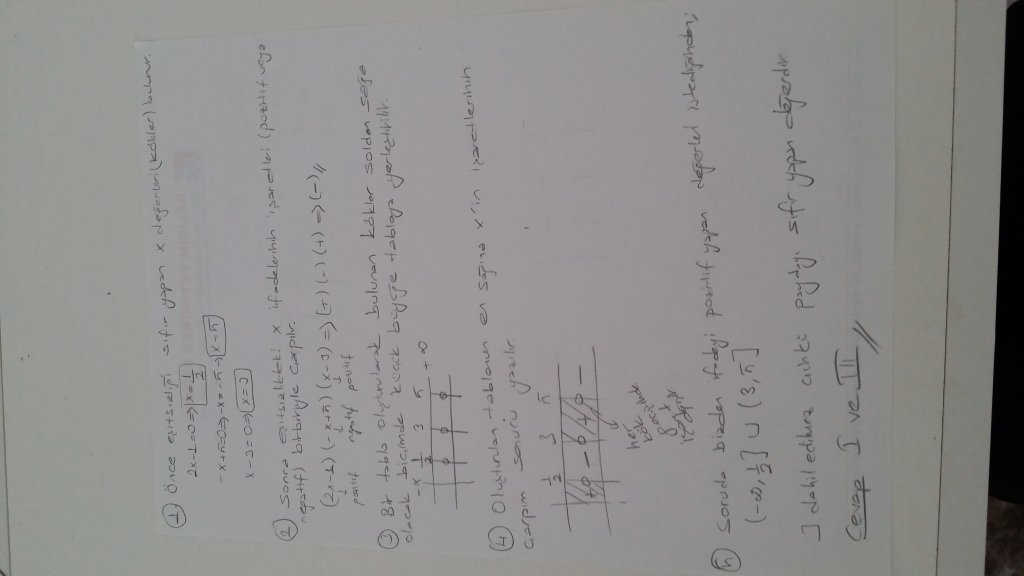 ① Önce eşitsizliği sıfır yapan x değerleri (kökler) bulunur.
2x-1=0 => x=1/2
-x+π=0 => -x=-π => x=π
x-3=0 => x=3
② Sonra eşitsizlikteki x ifadelerinin işaretleri (pozitif veya
negatif) birbiriyle çarpılır.
(2x-1) (-x+π) (x-3) => (+) (-) (+) => (-)
pozitif negatif pozitif
③ Bir tablo oluşturularak bulunan kökler soldan sağa
olacak biçimde küçük büyüğe tabloya yerleştirilir.
1/2 3 π +∞
④ Oluşturulan tablonun en sağına x'in işaretlerinin
çarpım sonucu yazılır.
1/2 3 π
+ - + -
her
⑤ Soruda bizden ifadeyi pozitif yapan değerler istediğinden;
(-∞, 1/2] ∪ (3, π]
3 dahil edilmez çünkü paydayı sıfır yapan değerdir.
Cevap I ve III